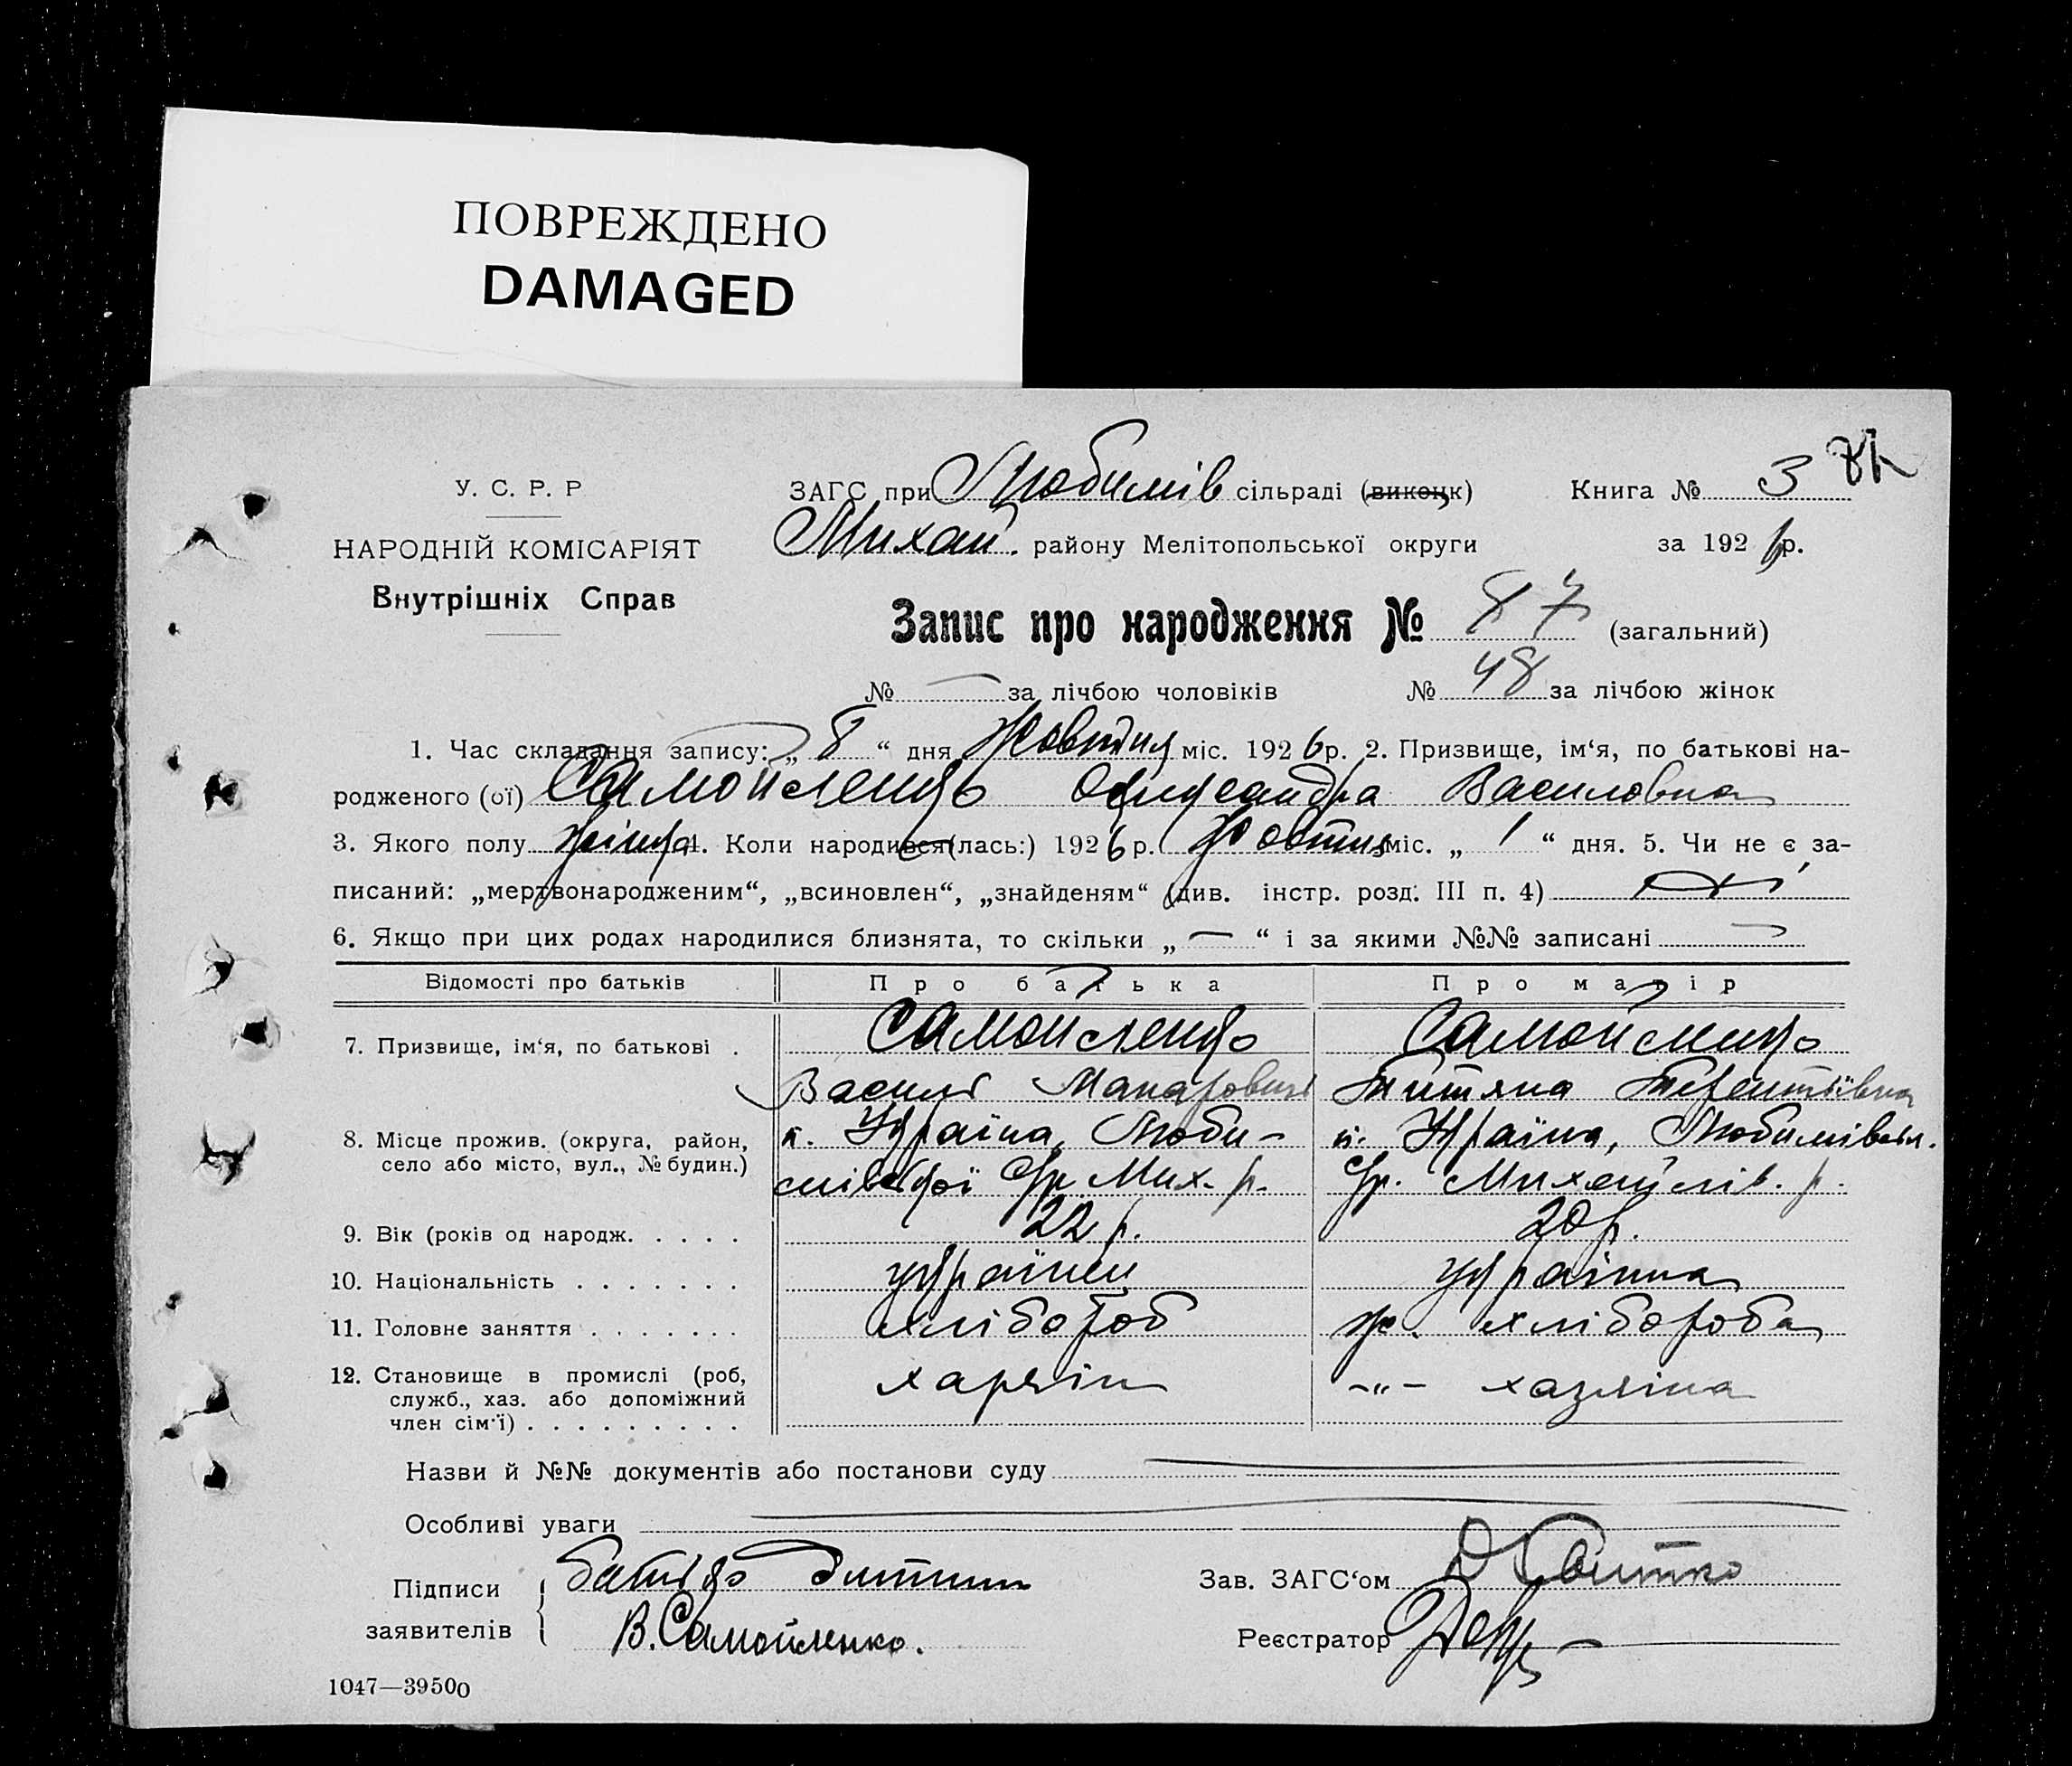 ПОВРЕЖДЕНО
DAMAGED
У. С. Р. Р
НАРОДНІЙ КОМІСАРІЯТ
Внутрішніх Справ
ЗАГС при Любимів сільраді (виконк) Книга № 3
Михай. району Мелітопольської округи за 1926 р.
Запис про народження № 87 (загальний)
№ — за лічбою чоловіків № 48 за лічбою жінок
1. Час складання запису: „ 8 “ дня Жовтня міс. 1926 р. 2. Призвище, ім‘я, по батькові на-
родженого (ої) Самойленко Олександра Василовна
3. Якого полу жінка 4. Коли народився (лась:) 1926 р. Жовтня міс. „ 1 “ дня. 5. Чи не є за-
писаний: „мертвонародженим“, „всиновлен“, „знайденям“ (див. інстр. розд. III п. 4)
6. Якщо при цих родах народилися близнята, то скільки „ — “ і за якими №№ записані —
Відомості про батьків Про батька Про матір
7. Призвище, ім‘я, по батькові . Самойленко Самойленко
Василь Макарович Титяна Терентіївна
8. Місце прожив. (округа, район, село або місто, вул., № будин.) Україна, Люби- Україна, Любимівськ.
мівської Ср Мих. р. Ср. Михайлів. р.
9. Вік (років од народж. . . . . 22 р. 20 р.
10. Національність . . . . . . . українец українка
11. Головне заняття . . . . . . . хлібороб ж. хлібороба
12. Становище в промислі (роб, служб., хаз. або допоміжний член сім‘ї) . . . . . . . . . -"- хазяіна
Назви й №№ документів або постанови суду
Особливі уваги
Підписи заявителів батько дитини
В. Самойленко.
Зав. ЗАГС‘ом
Реєстратор
1047—39500